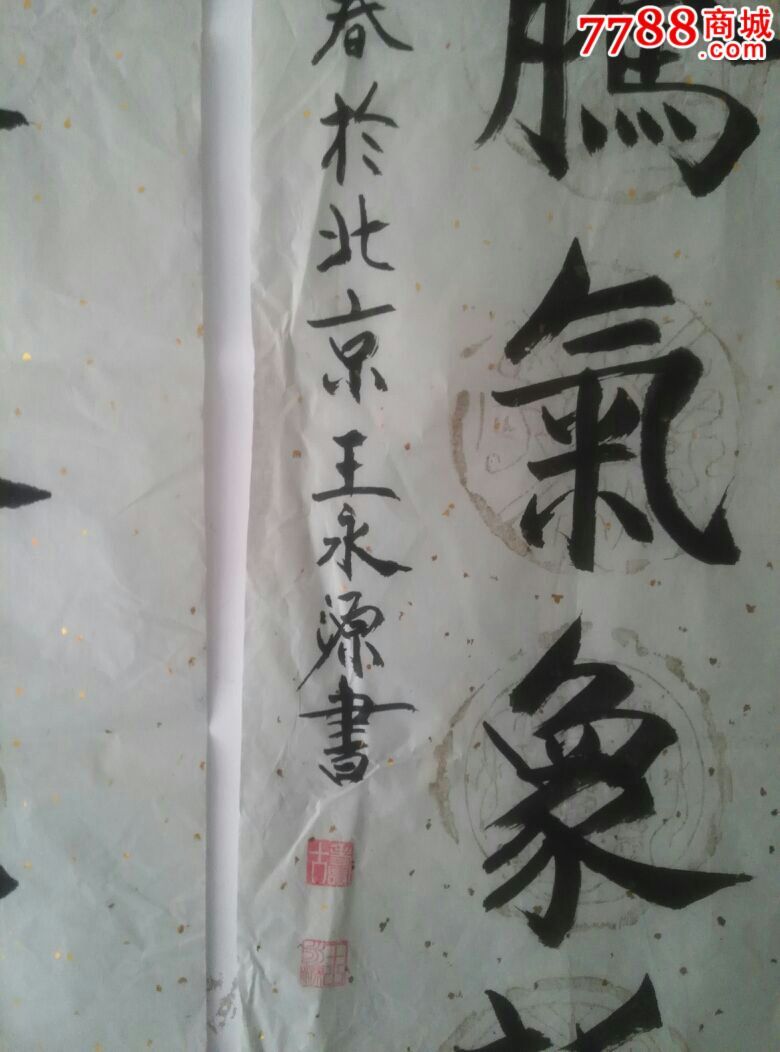 7788商城
.com
騰氣象
春於北京王永源書